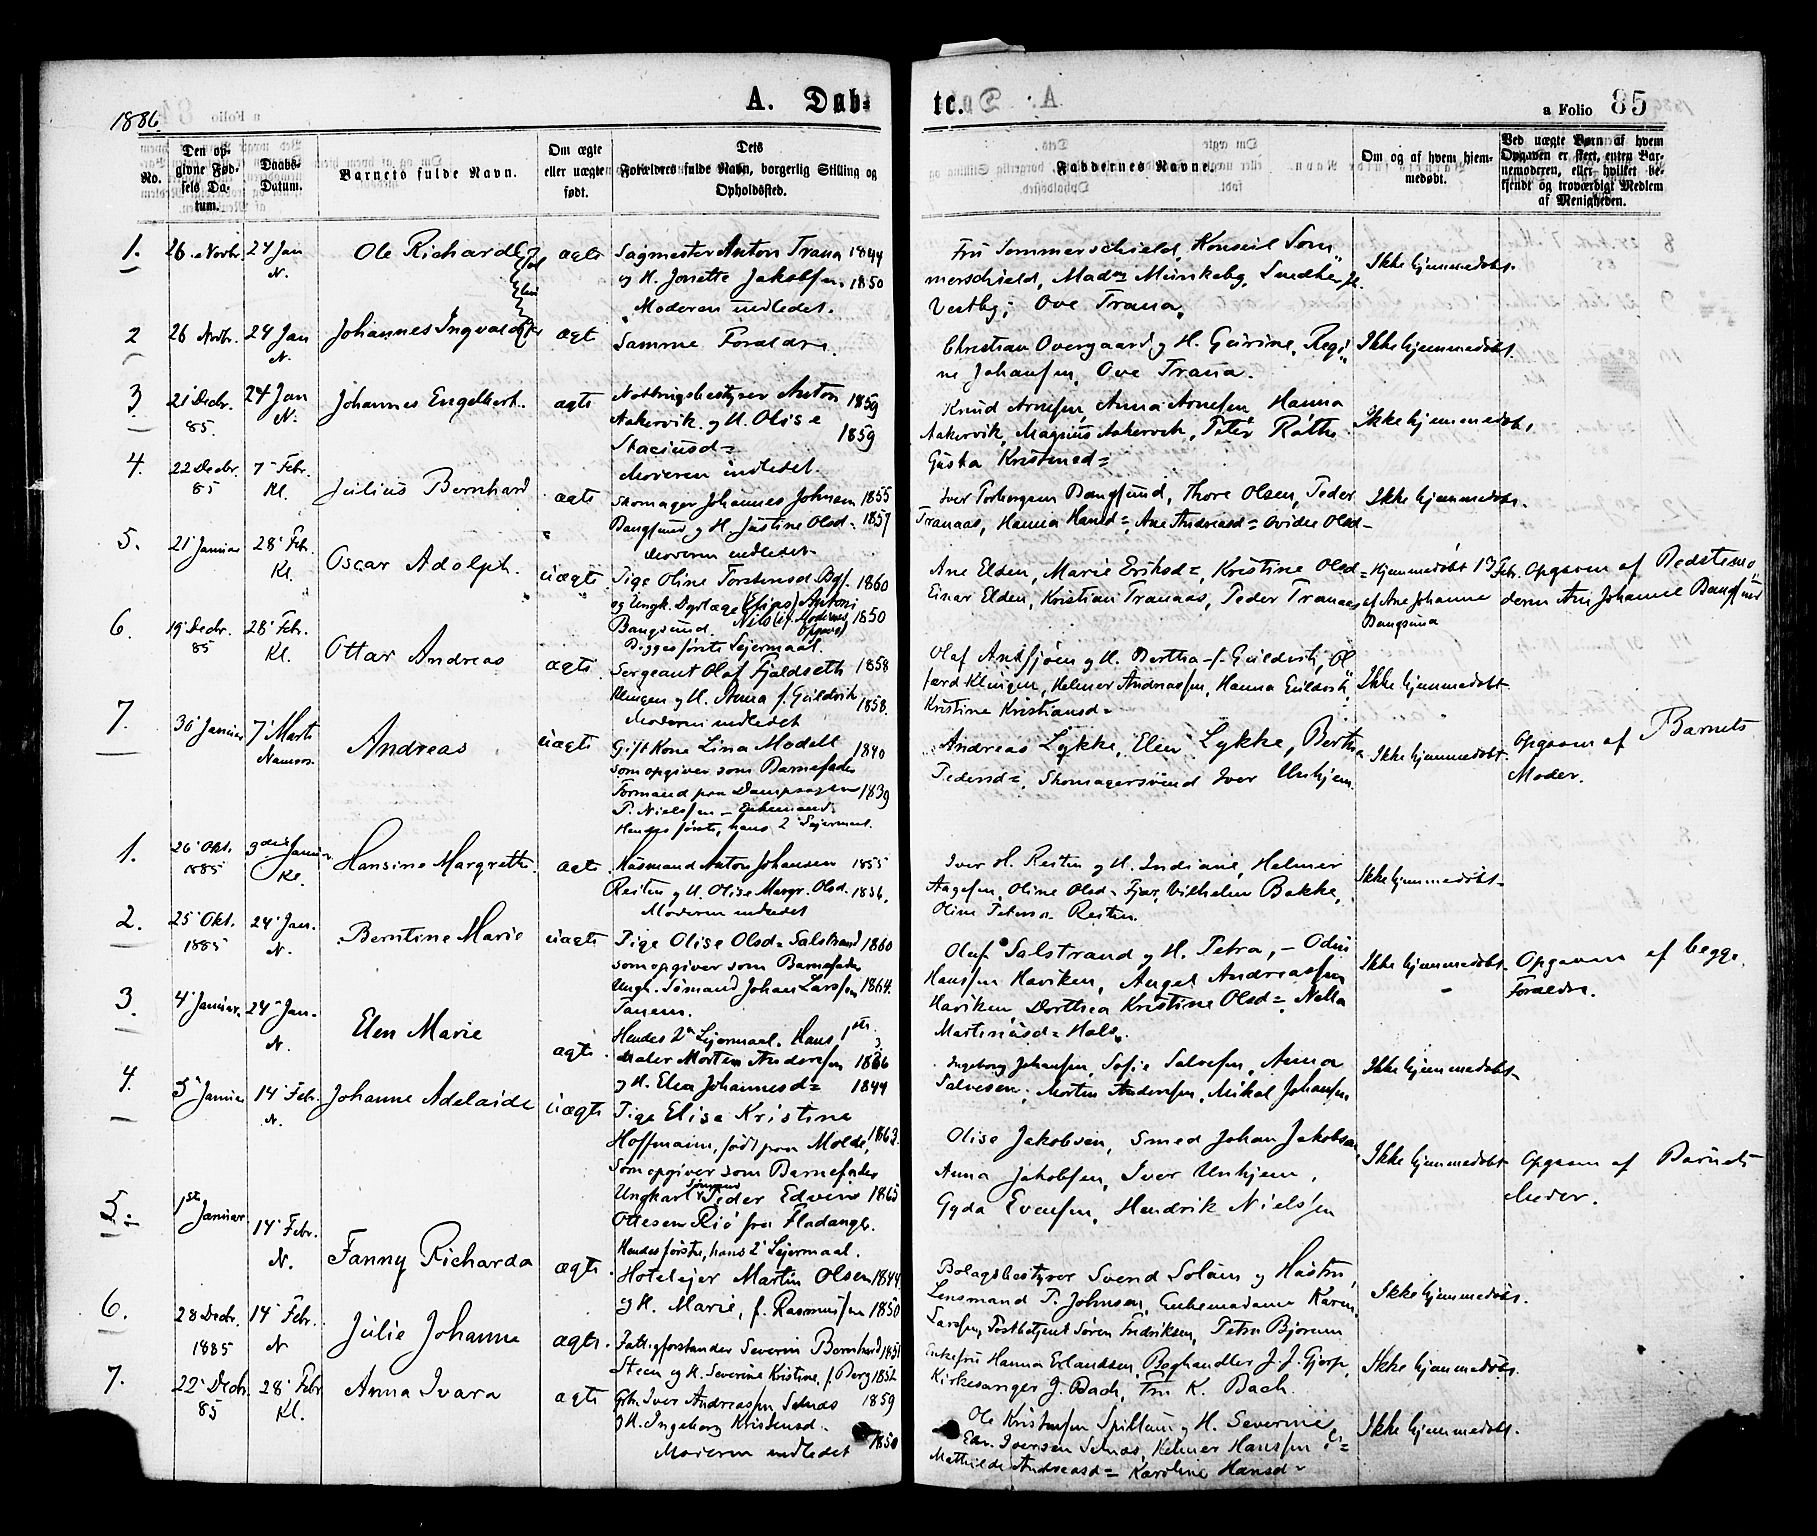 1886.
A. Dab-
te.
a Folio 85
No.
Den op-
givne Fød-
sels Da-
tum.
Daabs-
Datum.
Barnets fulde Navn.
Om ægte
eller uægte
født.
Dets
Forældres fulde Navn, borgerlig Stilling og
Opholdssted.
Faddernes Navne.
Om og af hvem hjem-
medøbt.
Ved uægte Børn af hvem
Opgaven er skeet, enten Bar-
nemoderen, eller hvilket be-
kjendt og troværdigt Medlem
af Menigheden.
1. 26 Novbr. 24 Jan N. Ole Richard ægte
Sagmester Anton Trana 1844
og H. Jonette Jakobsen 1850
Moderen indledet.
Fru Sommerschield, Konsul Som
merschield, Mad
Vestby, Ove Trana.
Ikke hjemmedøbt.
2 26 Novbr. 24 Jan N. Johannes Ingvald ægt
Samme Forældre.
Christian Overgaard og H. Regi
ne Johansen, Ove Trana.
Ikke hjemmedøbt.
3 21 Decbr. 85. 24 Jan N. Johannes Engelbert. ægte
Anton 1859
Aakervik og H. Olise 1859
Moderen indledet.
Knud Arnesen, Anna Arnesen, Hanna
Aakervik, Magnus Aakervik, Peter
Gusta Kristined=
Ikke hjemmedøbt.
4. 22 Decbr. 85 7 Febr. Kl. Julius Bernhard ægte
Skomager Johannes Johnsen 1855
Bangsund og H. Justine Olsd= 1857
Moderen indledet
Iver Torbergsen Bangsund, Thore Olsen, Peder
Tranaas, Hanna Hansd= Ane Andreasd= Ovidie Olsd=
Ikke hjemmedøbt.
5. 21 Januar 28 Feb. Kl. Oscar Adolph. uægte
Pige Oline Torstensd 1860
og Ungk. Dyrlæge Antoni 1850
Bangsund. Nils (ef. Moderens Opgave)
Begges første Lejermaal.
Ane Elden, Marie Eriksd=, Kristine Olsd=
Einar Elden, Kristian Tranaas, Peder Tranaas
Hjemmedøbt 13 Febr.
af Ane Johanne
Bangsund
Opgaven af Bedstemo
deren Ane Johanne Bangsund
6. 19 Decbr. 85 28 Febr. Kl. Ottar Andreas ægte
Sergeant Olaf Fjeldseth 1858
Klingen og H. Anna f. Guldvik 1858.
Moderen indledet
Olaf og H. Bertha f. Guldvik
Klingen, Helmer Andreassen, Hanna Guldvik
Kristine Kristiansd=
Ikke hjemmedøbt
7. 30 Januar 7 Marts Andreas uægte
Gift Kone Lina Modell 1840
som opgiver som Barnefader
Formand paa Dampsagen 1839
P. Nielssen – Enkemand
Hendes første, hans 2 Lejermaal.
Andreas Lykke, Elen Lykke, Bertha
Pedersd=, Skomagersvend Iver Unhjem
Ikke hjemmedøbt.
Opgaven af Barnets
Moder.
1. 26 Okt. 1885 3 Januar Kl. Hansine Margrethe. ægte
Husmand Anton Johansen 1855
Reiten og H. Olise Margr. Olsd. 1856.
Moderen indledet
Iver H. Reiten og H. Indiane, Helmer
Aagesen, Oline Olsd= Fjær, Vilhelm Bakke,
Oline Reiten.
Ikke hjemmedøbt
2. 25 Okt. 1885 24 Jan. N. Berntine Marie uægte
Pige Olise Olsd= Salstrand 1860
som opgiver som Barnefader
Ungk. Sømand Johan Larssen 1864.
Hendes 2 Lejermaal. Hans 1ste
Oluf Salstrand og H. Petra, – Odin
Hanssen Haviken, Angel Andreassen
Haviken Dorthea Kristine Olsd=, Nella
Martinusd= Hals.
Ikke hjemmedøbt
Opgaven af begge
Forældre.
3. 4 Januar. 24 Jan. N. Elen Marie ægte.
Maler Morten Andersen
og H. Elea Johannesd= 1844
Ingeborg Johansen, Sofie Salvesen, Anna
Salvesen, Morten Andersen, Mikal Johansen
Ikke hjemmedøbt
4. 5 Januar 14 Febr. N. Johanne Adelaide uægte
Pige Elise Kristine
Hoffmann, født paa Molde, 1863.
som opgiver som Barnefader
Ungkarl Sømand Peder Edvin 1865
Ottesen Riø fra Fladanger.
Hendes første, hans 2 Lejermaal.
Olise Jakobsen, Smed Johan Jakobsen
Anna Jakobsen, Iver Unhjem,
Gyda Evensen, Hendrik Nielssen
Ikke hjemmedøbt
Opgaven af Barnets
Moder.
5. 1st Januar 14 Febr. N. Fanny Richarda ægte.
Hotelejer Martin Olsen 1844
og H. Marie, f. Rasmussen 1850
Bolagsbestyrer Svend Solum og Hustru,
Lensmand P. Johnsen, Enkemadame Karen
Larssen, Postbetjent Søren Fredriksen, Petra Bjørum
Ikke hjemmedøbt.
6. 28 Decbr. 1885 14 Febr. N Julie Johanna ægte.
Fattigforstander Severin Bernhard 1851
Steen og H. Severine Kristine f Berg 1852
Enkefru Hanna Erlandsen, Boghandler J. J.
Kirkesanger J. Bach, Fru K. Bach.
Ikke hjemmedøbt.
7. 22 Decbr. 85 28 Febr Kl. Anna Ivara ægte
Grh. Iver Andreassen Selnæs 1859
og H. Ingeborg Kristensd. 1850
Moderen indledet
Ole Kristensen Spillum og H. Severine
Edv. Iversen Selnæs, Helmer Hanssen
Mathilde Andreasd= Karoline Hansd=
Ikke hjemmedøbt.